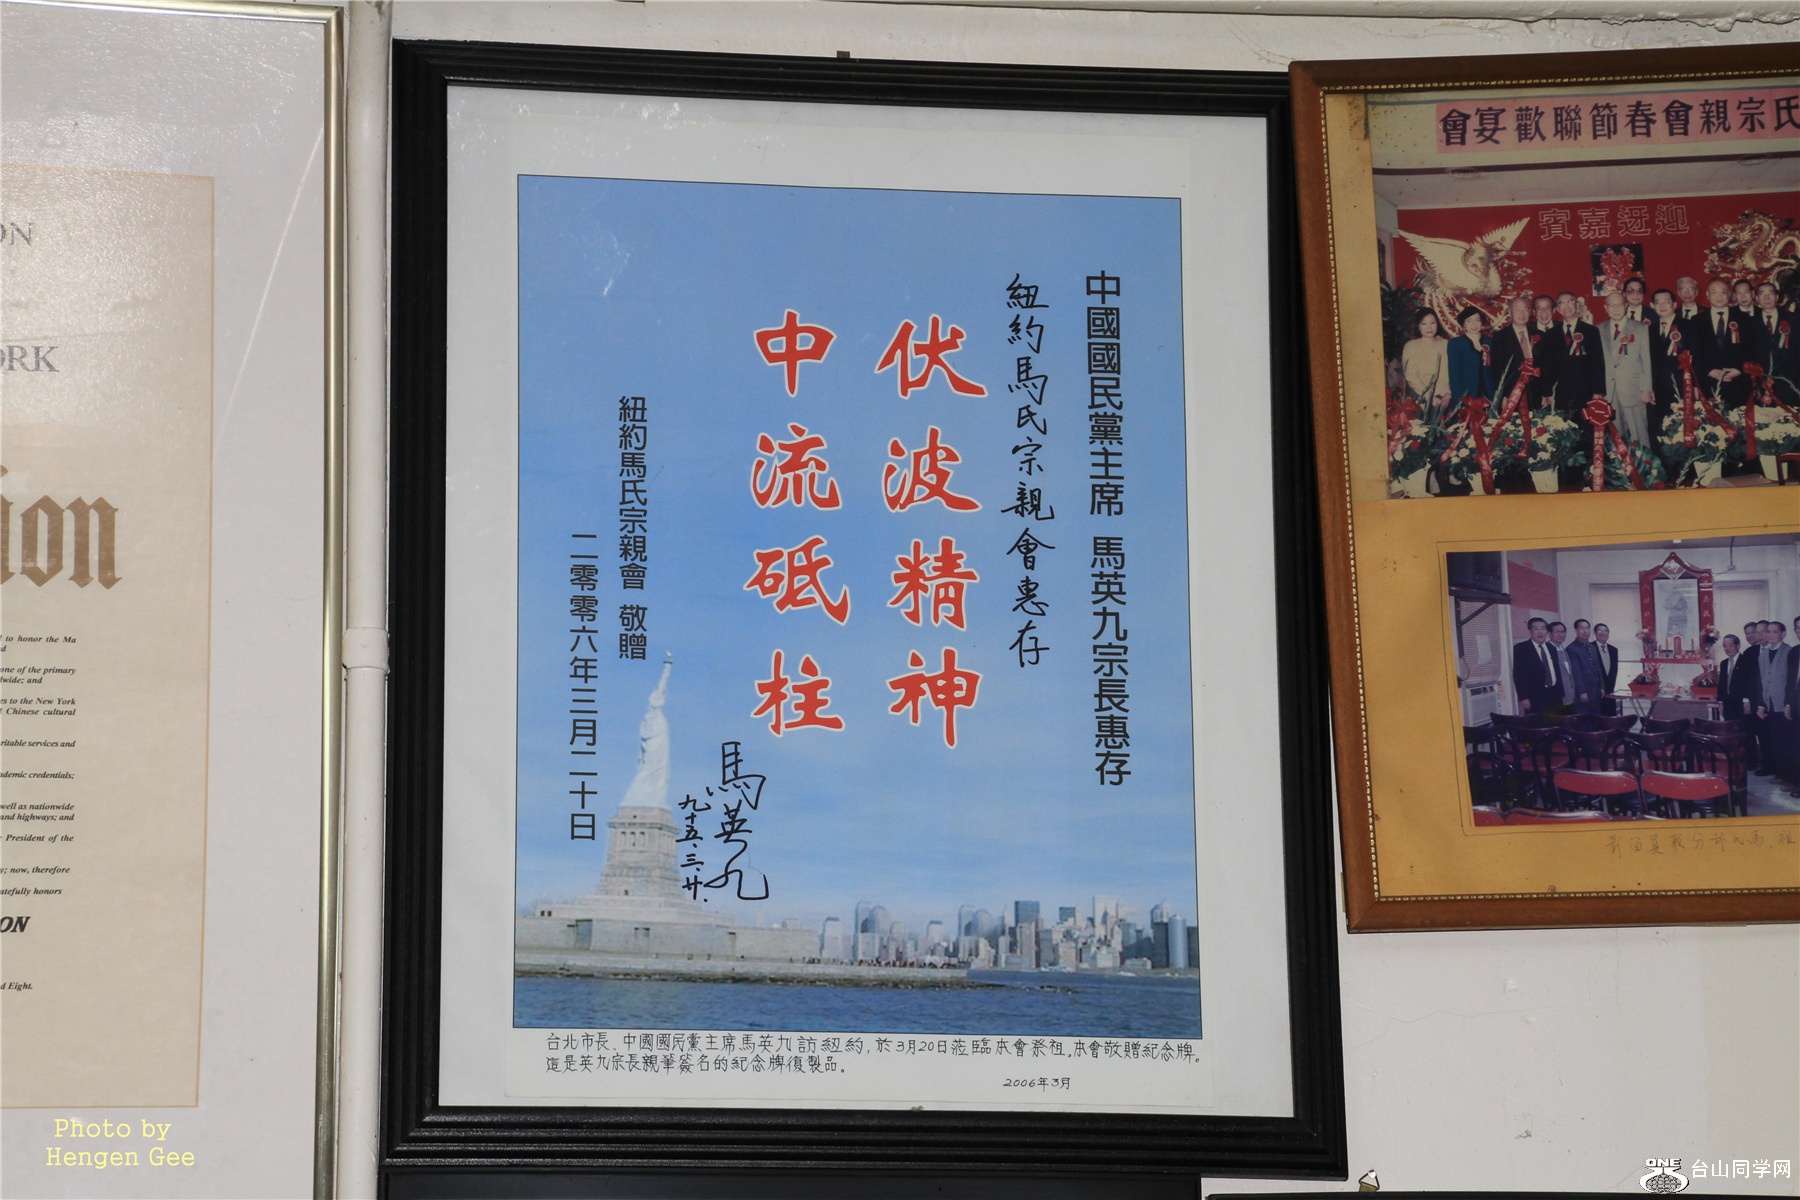 ON
ORK
ion
to honor the Ma
one of the primary
wide; and
es to the New York
Chinese cultural
ritable services and
demic credentials;
well as nationwide
and highways; and
President of the
y; now, therefore
atefully honors
ON
d Eight.
中國國民黨主席 馬英九宗長惠存
紐約馬氏宗親會惠存
伏波精神
中流砥柱
馬英九
九十五.三.廿.
紐約馬氏宗親會 敬贈
二零零六年三月二十日
台北市長、中國國民黨主席馬英九訪紐約,於3月20日蒞臨本會祭祖。本會敬贈紀念牌。
這是英九宗長親筆簽名的紀念牌復製品。
2006年3月
會宴歡聯節春會親宗氏
賓嘉迓迎
Photo by
Hengen Gee
ONE
台山同学网